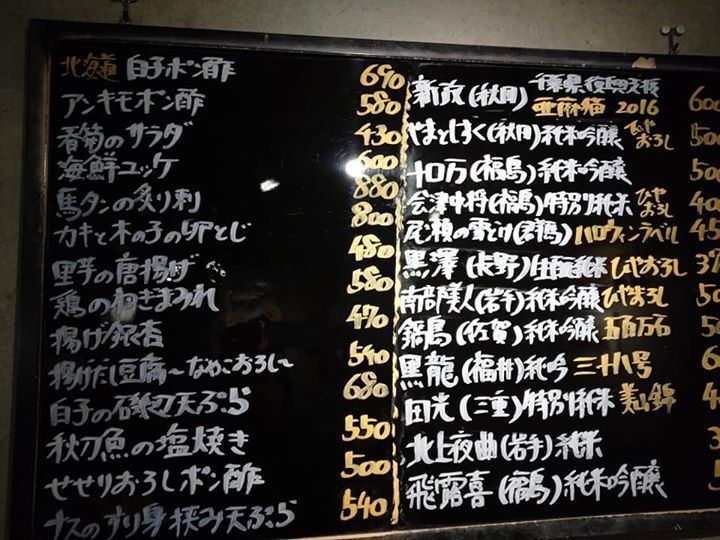 北海道 白子ポン酢 690
アンキモポン酢 580
春菊のサラダ 430
海鮮ユッケ 600
馬タンの炙り刺 880
カキと木の子の卵とじ 800
里芋の唐揚げ 480
鶏のねぎまみれ 580
揚げ銀杏 470
揚げだし豆腐〜なめこおろし〜 540
白子の磯辺天ぷら 680
秋刀魚の塩焼き 550
せせりおろしポン酢 500
ナスのすり身挟み天ぷら 540
新政(秋田) 亜麻猫 2016
やまとしずく(秋田)純米吟醸 ひやおろし
十口万(福島)純米吟醸
会津中将(福島)特別純米 ひやおろし
尾瀬の雪どけ(群馬) ハロウィンラベル
黒澤(長野)生酛純米 ひやおろし
南部美人(岩手)純米吟醸 ひやおろし
鍋島(佐賀)純米吟醸 五百万石
黒龍(福井)純吟 三十八号
田光(三重)特別純米 美山錦
北上夜曲(岩手)純米
飛露喜(福島)純米吟醸